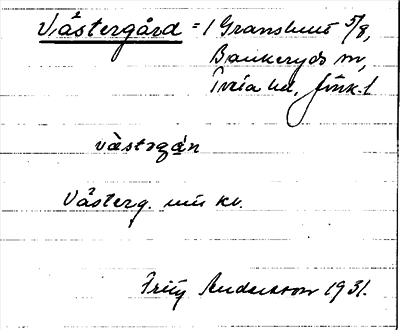 Västergård = 1 Granshult 5/8,
Bankeryds sn,
Tveta hd, Jönk. l
västṛgɑ́n
Västerg. mis kv.
Fritz Andersson 1931.